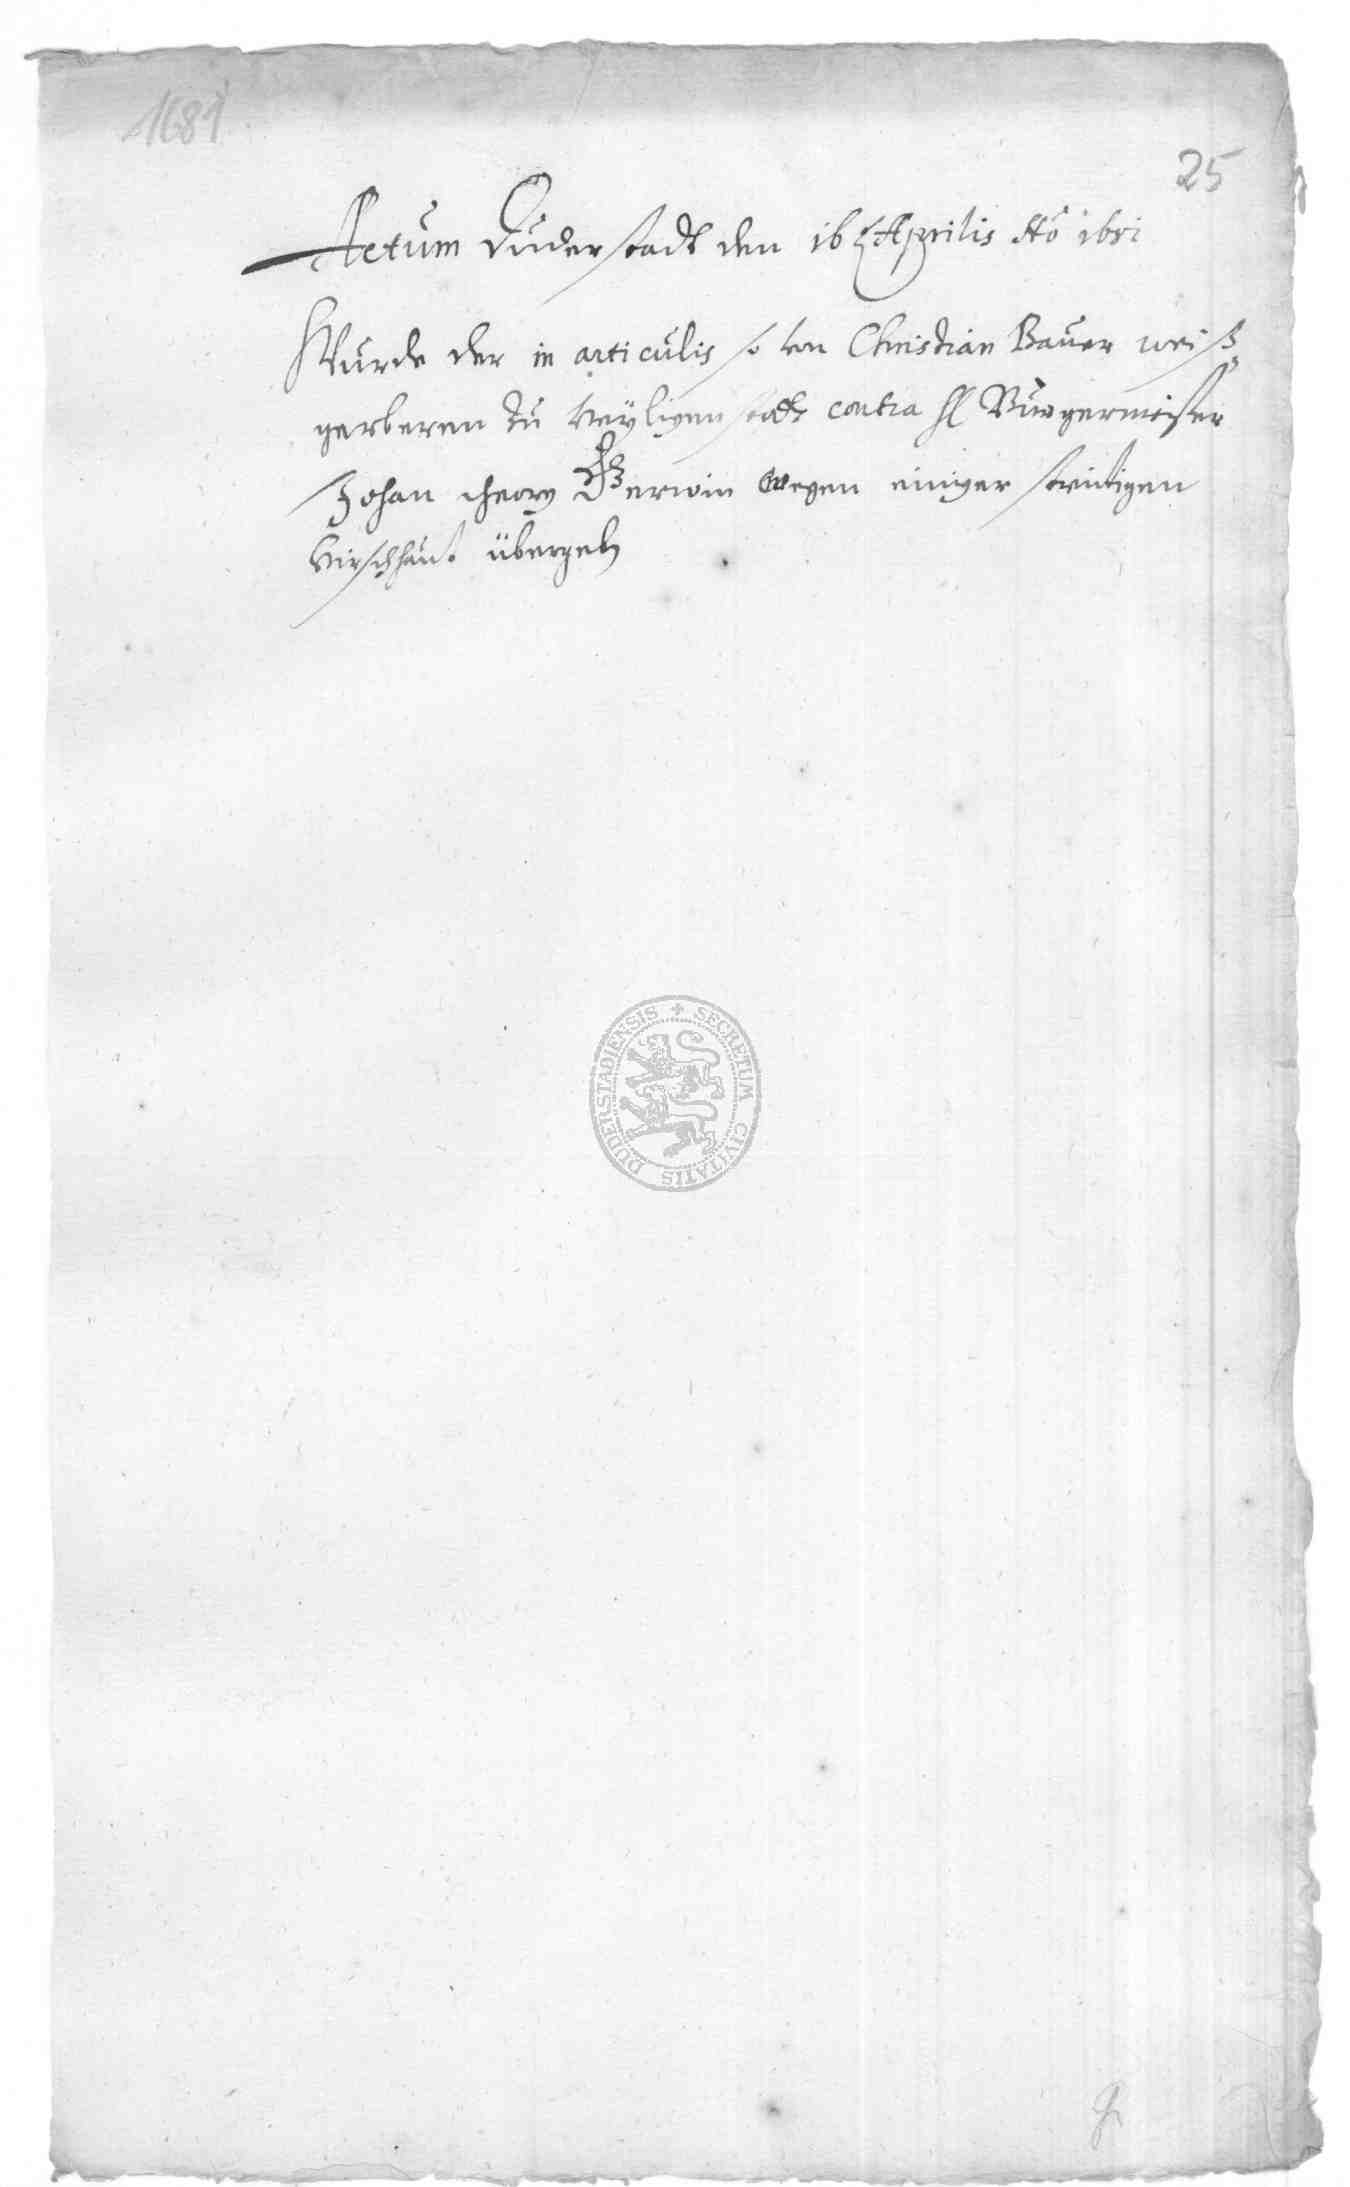 1681
25
Actum Duderstadt den 16 Aprilis Aō 1681
Wurde der in articulis so von Christian Bauer weiß
gerberen zu Heyligenstadt contra H Burgermeister
Johan Georg Gerwin wegen einiger streitigen
Hirschhäut übergeb
SECRETUM CIVITATIS DUDERSTADIENSIS